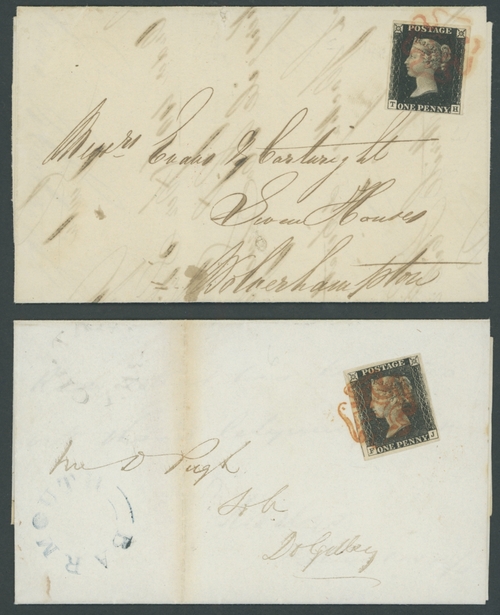 POSTAGE
T H
ONE PENNY
Messrs Evans & Cartwright
Swan Houses
Wolverhampton
POSTAGE
F J
ONE PENNY
Mr D Pugh
Solr
Dolgelley
BARMOUTH